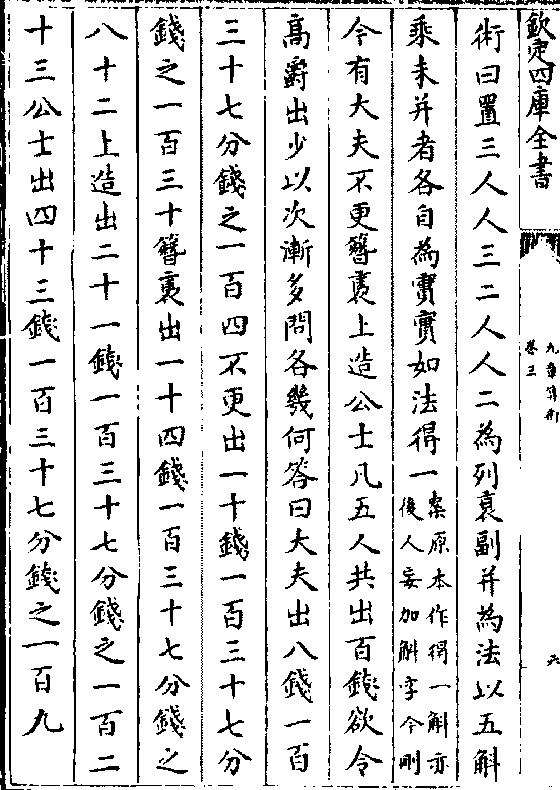 欽定四庫全書
九章算術
卷三
六
術曰置三人人三二人人二為列衰副并為法以五斛
乘未并者各自為實實如法得一案原本作得一斛亦
後人妄加斛字今刪
今有大夫不更簪褭上造公士凡五人共出百錢欲令
高爵出少以次漸多問各幾何答曰大夫出八錢一百
三十七分錢之一百四不更出一十錢一百三十七分
錢之一百三十簪褭出一十四錢一百三十七分錢之
八十二上造出二十一錢一百三十七分錢之一百二
十三公士出四十三錢一百三十七分錢之一百九